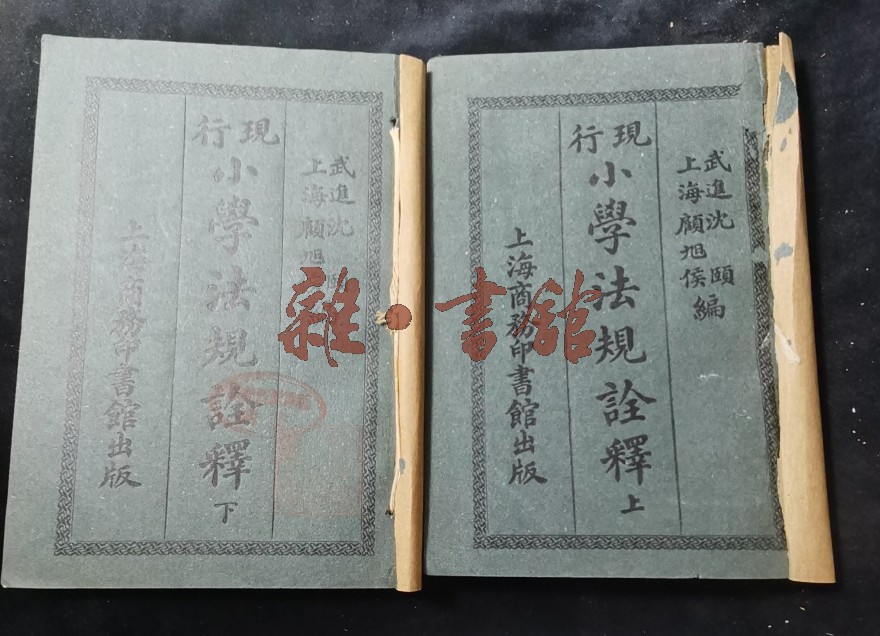 武進沈頤
上海顧旭侯
編
現行
小學法規詮釋
上
上海商務印書館出版
武進沈頤
上海顧旭
現行
小學法規詮釋
下
上海商務印書館出版
雜·書館